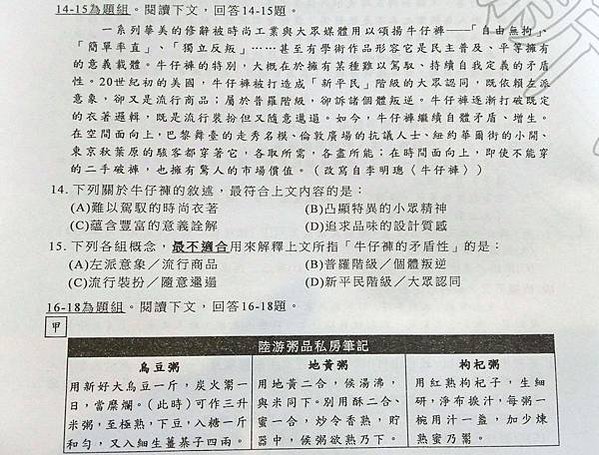 14-15為題組。閱讀下文，回答14-15題。
一系列華美的修辭被時尚工業與大眾媒體用以頌揚牛仔褲——「自由無拘」、
「簡單率直」、「獨立反叛」⋯⋯甚至有學術作品形容它是民主普及、平等擁有
的意義載體。牛仔褲的特別，大概在於擁有某種難以駕馭、持續自我定義的矛盾
性。20世紀初的美國，牛仔褲被打造成「新平民」階級的大眾認同，既依賴左派
意象，卻又是流行商品；屬於普羅階級，卻訴諸個體叛逆。牛仔褲逐漸打破既定
的衣著邏輯，既是流行裝扮但又隨意邋遢。如今，牛仔褲繼續自體矛盾、增生。
在空間面向上，巴黎舞臺的走秀名模、倫敦廣場的抗議人士、紐約華爾街的小開、
東京秋葉原的駭客都穿著它，各取所需，各盡所能；在時間面向上，即使不能穿
的二手破褲，也擁有驚人的市場價值。（改寫自李明璁〈牛仔褲〉）
14. 下列關於牛仔褲的敘述，最符合上文內容的是：
(A)難以駕馭的時尚衣著 (B)凸顯特異的小眾精神
(C)蘊含豐富的意義詮解 (D)追求品味的設計質感
15. 下列各組概念，最不適合用來解釋上文所指「牛仔褲的矛盾性」的是：
(A)左派意象／流行商品 (B)普羅階級／個體叛逆
(C)流行裝扮／隨意邋遢 (D)新平民階級／大眾認同
16-18為題組。閱讀下文，回答16-18題。
甲
陸游粥品私房筆記
烏豆粥 地黃粥 枸杞粥
用新好大烏豆一斤，炭火鬻一
日，當糜爛。（此時）可作三升
米粥，至極熟，下豆，入糖一斤
和勻，又入細生薑棊子四兩。
用地黃二合，候湯沸，
與米同下。別用酥二合、
蜜一合，炒令香熟，貯
器中，候粥欲熟乃下。
用紅熟枸杞子，生細
研，淨布捩汁，每粥一
椀用汁一盞，加少煉
熟蜜乃鬻。